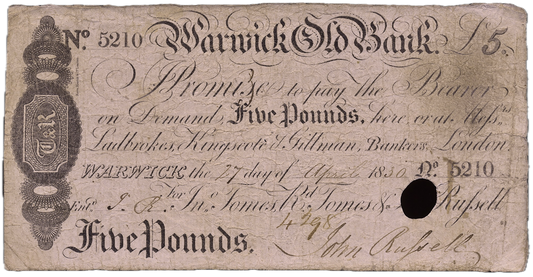 No. 5210 Warwick Old Bank. £5
I Promise to pay the Bearer
on Demand Five Pounds, here or at Messrs.
Ladbrokes, Kingscote & Gillman, Bankers, London
WARWICK the 27 day of April 1830 No. 5210
T&R
Entd. J. R. For Jno. Tomes, Rd. Tomes & Russell
4298
Five Pounds. John Russell